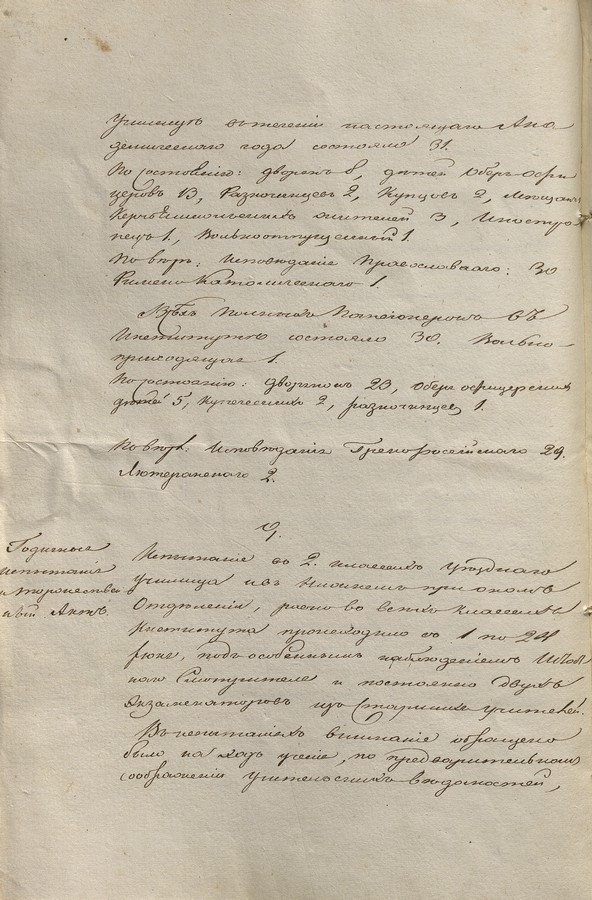 Училищѣ въ теченіи настоящаго Ака-
демическаго года состояло 31.
По состоянію: дворянъ 8, дѣтей Оберъ-офи-
церовъ 13, Разночинцевъ 2, Купцовъ 2, Мещанъ
жителей 3, Иностра-
нецъ 1, Вольноотпущенный 1.
По вѣрѣ: исповѣданія Православнаго: 30
Римско-Католическаго 1.
Полныхъ Пансіонеровъ въ
Институтѣ состояло 30. Вольно-
приходящая 1.
По состоянію: дворянокъ 23, Оберъ офицерскихъ
дѣтей 5, купеческихъ 2, разночинцевъ 1.
По вѣрѣ: Исповѣданія Грекороссійскаго 29.
Лютеранскаго 2.
Годичные
испытанія
и торжествен-
ный Актъ.
Испытаніе въ 2. классахъ Уѣзднаго
училища и въ Нисшемъ при ономъ
Отдѣленіи, равно во всѣхъ классахъ
Института происходило съ 1 по 24
Іюня, подъ особеннымъ наблюденіемъ Штат-
наго Смотрителя и постоянно двухъ
Экзаменаторовъ изъ Старшихъ учителей.
Въ испытаніяхъ вниманіе обращено
было на ходъ ученія, по предварительномъ
соображеніи учительскихъ вѣдомостей,